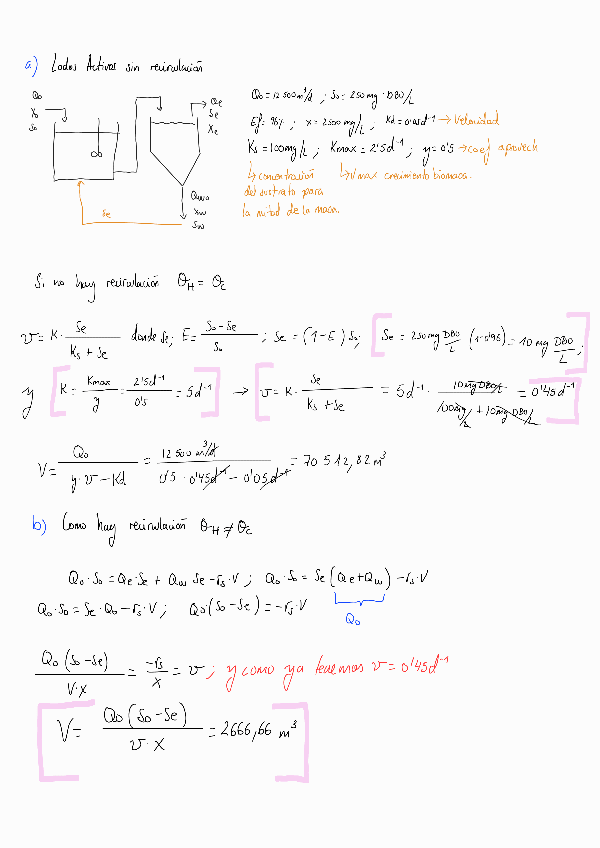 a) Lodos Activos sin recirculación
Q₀ X₀ S₀
Qe Se Xe
Qw Xw Sw
Se
Q₀ = 12 500 m³/d ; S₀ = 250 mg · DBO/L
Ef = 96% ; x = 2500 mg/L ; Kd = 0'05 d⁻¹ → Velocidad
Ks = 100 mg/L ; Kmax = 2'5 d⁻¹ ; y = 0'5 → coef aprovech
↳ concentración del sustrato para la mitad de la max.
↳ V max crecimiento biomasa.
Si no hay recirculación θH = θc
v = K · Se / (Ks + Se) donde Se; E = (S₀ - Se) / S₀ ; Se = (1 - E) S₀; [Se = 250 mg DBO/L (1 - 0'96) = 10 mg DBO/L ;
y [K = Kmax / y = 2'5 d⁻¹ / 0'5 = 5 d⁻¹] → [v = K · Se / (Ks + Se) = 5 d⁻¹ · 10 mg DBO/L / (100 mg/L + 10 mg DBO/L) = 0'45 d⁻¹]
V = Q₀ / (y · v - Kd) = 12 500 m³/d / (0'5 · 0'45 d⁻¹ - 0'05 d⁻¹) = 70 512,82 m³
b) Como hay recirculación θH ≠ θc
Q₀ · S₀ = Qe · Se + Qw Se - rs · V ; Q₀ · S₀ = Se (Qe + Qw) - rs · V
Q₀ · S₀ = Se · Q₀ - rs · V ; Q₀ · (S₀ - Se) = - rs · V
Q₀
Q₀ (S₀ - Se) / (V · x) = - rs / x = v ; y como ya tenemos v = 0'45 d⁻¹
[V = Q₀ (S₀ - Se) / (v · x) = 2666,66 m³]